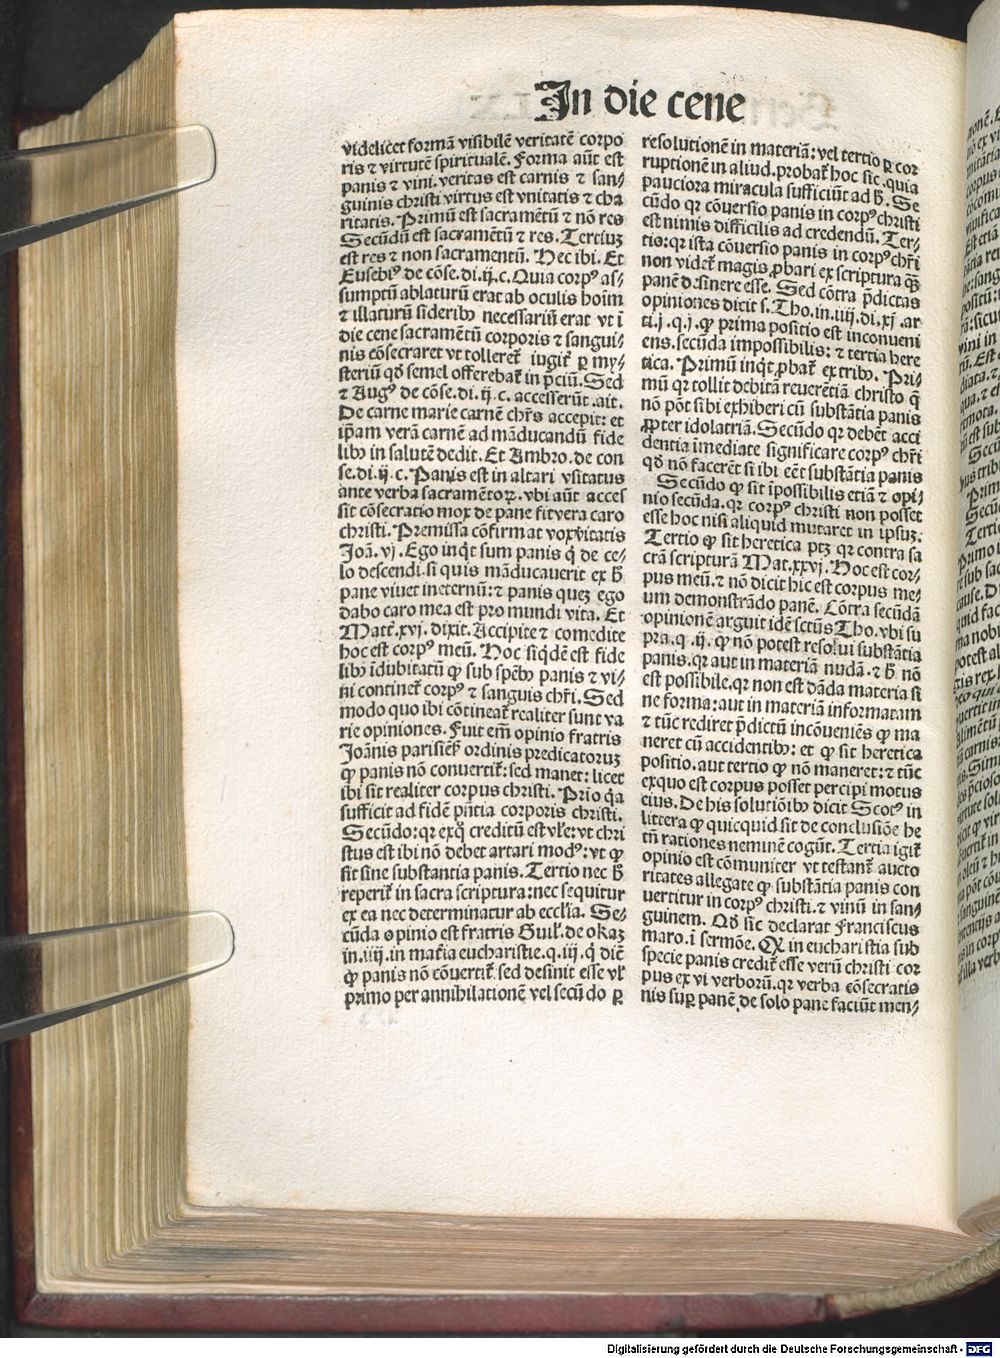 In die cene
videlicet formā visibilē veritatē corpo
ris ⁊ virtutē spiritualē. Forma aūt est
panis ⁊ vini. veritas est carnis ⁊ san⸗
guinis christi virtus est vnitatis ⁊ cha
ritatis. Primū est sacramētū ⁊ nō res
Secūdū est sacramētū ⁊ res. Tertiuꝫ
est res ⁊ non sacramentū. Hec ibi. Et
Eusebiꝰ de cōse. di. ij. c. Quia corpꝰ as⸗
sumptū ablaturū erat ab oculis hoīm
⁊ illaturū sideribꝰ necessariū erat vt ī
die cene sacramētū corporis ⁊ sangui⸗
nis cōsecraret vt tolleret̄ iugit̄ ꝑ my⸗
steriū qd̄ semel offerebat̄ in p̄ciū. Sed
⁊ Augꝰ de cōse. di. ij. c. accesserūt. ait.
De carne marie carnē chr̄s accepit: et
ip̄am verā carnē ad māducandū fide
libꝰ in salutē dedit. Et Ambro. de con
se. di. ij. c. Panis est in altari vsitatus
ante verba sacramētoꝝ. vbi aūt acces
sit cōsecratio mox de pane fit vera caro
christi. Premissa cōfirmat vox v̄itatis
Joā. vj. Ego inq̄t sum panis q̄ de ce⸗
lo descendi. si quis māducauerit ex h̄
pane viuet in eternū: ⁊ panis queꝫ ego
dabo caro mea est pro mundi vita. Et
Matḗ. xvj. dixit. Accipite ⁊ comedite
hoc est corpꝰ meū. Hoc siq̄dē est fide
libꝰ īdubitatū ꝙ sub spēbꝰ panis ⁊ vi⸗
ni continet̄ corpꝰ ⁊ sanguis chr̄i. Sed
modo quo ibi cōtineat̄ realiter sunt va
rie opiniones. Fuit em̄ opinio fratris
Joānis parisień ordinis predicatoruꝫ
ꝙ panis nō conuertit̄: sed manet: licet
ibi sit realiter corpus christi. Prīo q̄a
sufficit ad fidē p̄ntia corporis christi.
Secūdo: qꝛ exq̄ creditū est vl̄e: vt chri
stus est ibi nō debet artari modꝰ: vt ꝙ
sit sine substantia panis. Tertio nec h̄
reperit̄ in sacra scriptura: nec sequitur
ex ea nec determinatur ab eccl̄ia. Se⸗
cūda opinio est fratris Guil̄. de okaꝫ
in. iiij. in mat̄ia eucharistie. q. iij. q̄ dic̄
ꝙ panis nō cōuertit̄. sed desinit esse vl̄
primo per annihilationē vel secūdo ꝑ
resolutionē in materiā: vel tertio ꝑ cor
ruptionē in aliud. probat̄ hoc sic. quia
pauciora miracula sufficiūt ad h̄. Se
cūdo qꝛ cōuersio panis in corpꝰ christi
est nimis difficilis ad credendū. Ter⸗
tio: qꝛ ista cōuersio panis in corpꝰ chr̄i
non videt̄ magis ꝓbari ex scriptura q̄ꝫ
panē desinere esse. Sed cōtra p̄dictas
opiniones dicit s. Tho. in. iiij. di. xj. ar
ti. j. q. j. ꝙ prima positio est inconueni
ens. secūda impossibilis: ⁊ tertia here
tica. Primū inq̄t ꝓbat̄ ex tribꝰ. Pri⸗
mū qꝛ tollit debitā reuerētiā christo q̄
nō pōt sibi exhiberi cū substātia panis
ꝓpter idolatriā. Secūdo qꝛ debet̄ acci
dentia īmediate significare corpꝰ chr̄i
qd̄ nō facerēt si ibi eēt substātia panis
Secūdo ꝙ sit īpossibilis etiā ⁊ opi⸗
nio secūda. qꝛ corpꝰ christi non posset
esse hoc nisi aliquid mutaret̄ in ipsuꝫ.
Tertio ꝙ sit heretica ptꝫ qꝛ contra sa
crā scripturā Mat. xxvj. Hoc est cor⸗
pus meū. ⁊ nō dicit hic est corpus me⸗
um demonstrādo panē. Cōtra secūdā
opinionē arguit idē sctūs Tho. vbi su
pra. q. ij. ꝙ nō potest resolui substātia
panis. qꝛ aut in materiā nudā. ⁊ h̄ nō
est possibile. qꝛ non est dāda materia si
ne forma: aut in materiā informatam
⁊ tūc rediret p̄dictū incōueniēs ꝙ ma
neret cū accidentibꝰ: et ꝙ sit heretica
positio. aut tertio ꝙ nō maneret: ⁊ tūc
exquo est corpus posset percipi motus
eius. De his solutiōibꝰ dicit Scotꝰ in
littera ꝙ quicquid sit de conclusiōe he
tn̄ rationes neminē cogūt. Tertia igit̄
opinio est cōmuniter vt testant̄ aucto
ritates allegate ꝙ substātia panis con
uertitur in corpꝰ christi. ⁊ vinū in san⸗
guinem. Qd̄ sic declarat Franciscus
maro. ī sermōe. Qꝛ in eucharistia sub
specie panis credit̄ esse verū christi cor
pus ex vi verborū. qꝛ verba cōsecratis
nis suꝑ panē. de solo pane faciūt men⸗
Digitalisierung gefördert durch die Deutsche Forschungsgemeinschaft - DFG